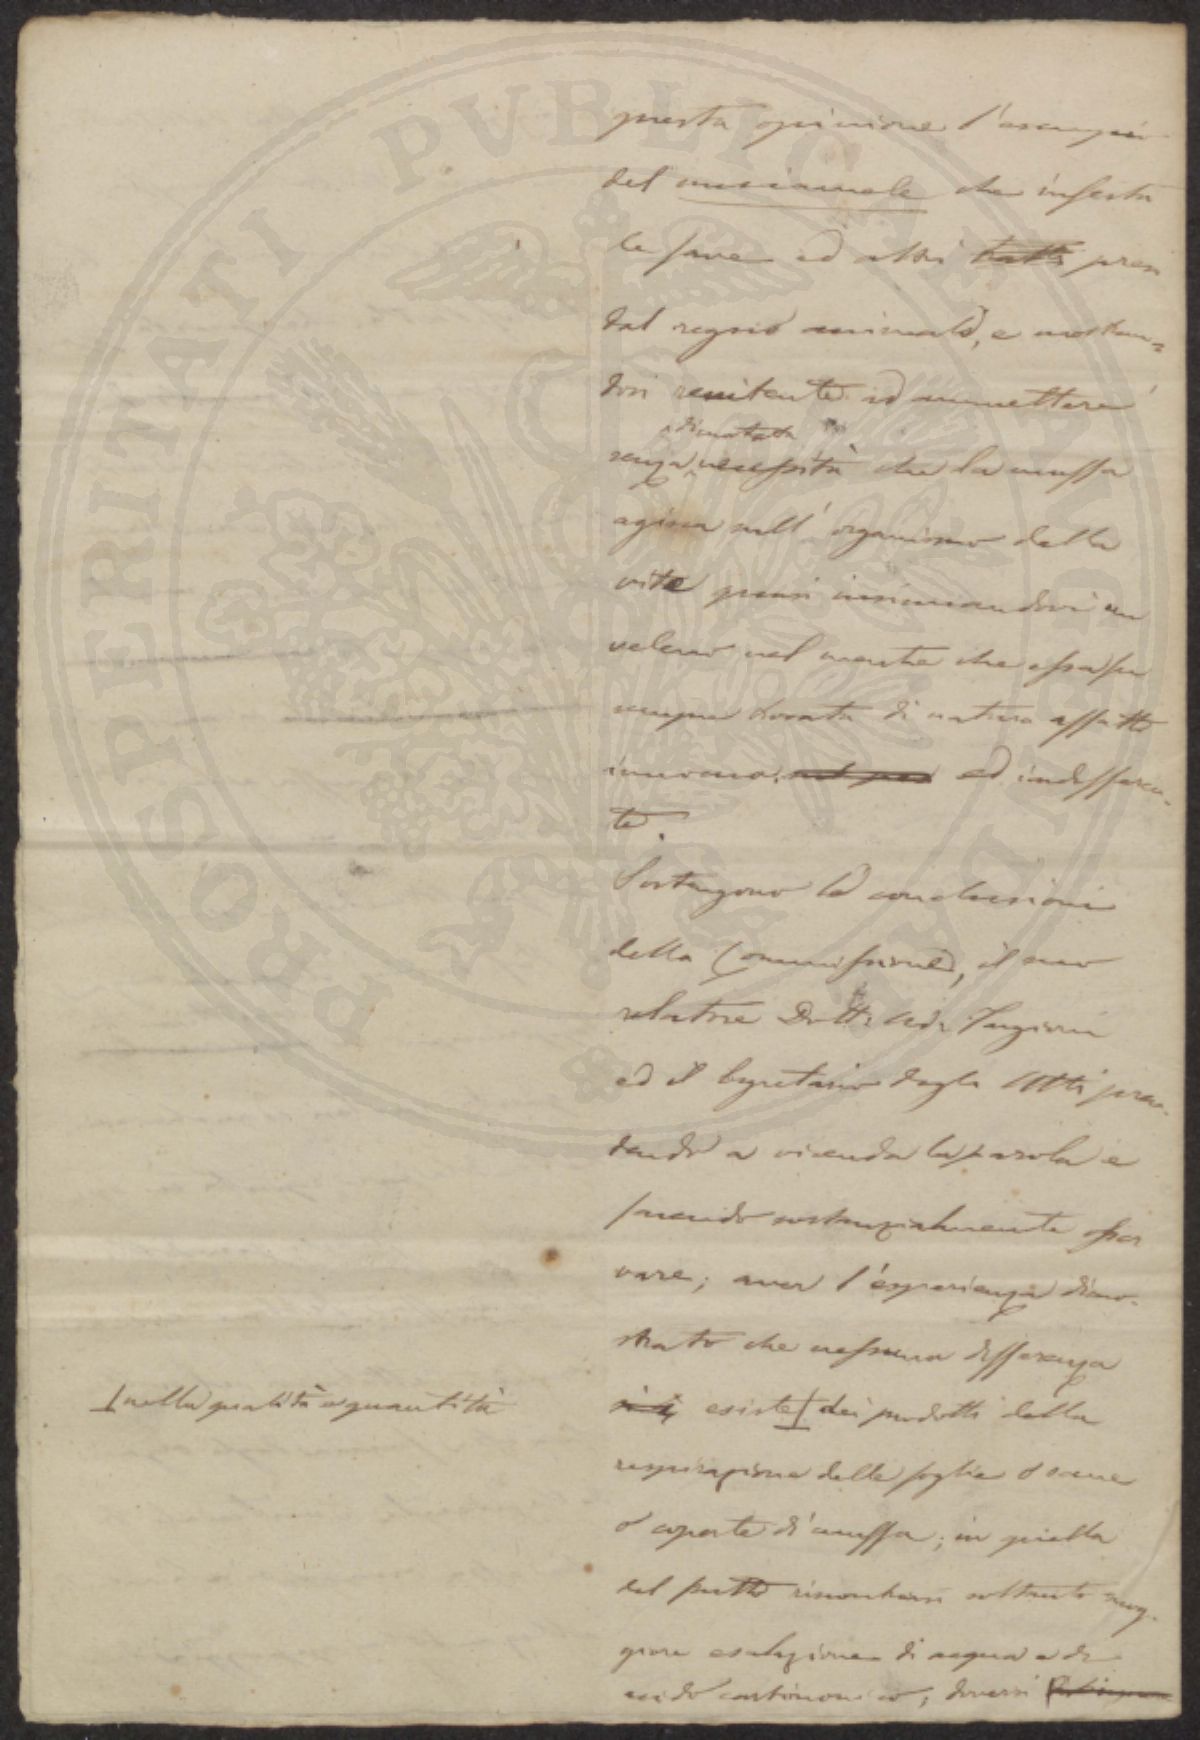 questa opinione l'esempio
del che infesta
le fave ed altri tratti presi
dal regno animale, e mostran-
dosi renitente ad ammettere
dimostrata
senza necessità che la muffa
agisca nell'organismo della
vite quasi insinuandovi un
veleno nel mentre che essa fu
sempre trovata di natura affatto
innocua, ed indifferen-
te.
Sostengono le conclusioni
della Commissione, il suo
relatore Dott. Ad. Targioni
ed il Segretario degli Atti pren-
dendo a vicenda la parola e
facendo sostanzialmente osser
vare; aver l'esperienza dimo-
strato che nessuna differenza
nella qualità e quantità
esiste dei prodotti della
respirazione delle foglie o sane
o coperte di muffa; in quella
del frutto riscontrarsi soltanto mag-
giore esalazione di acqua e di
acido carbonico; doversi
PROSPERITATI PUBLICAE AUGENDAE